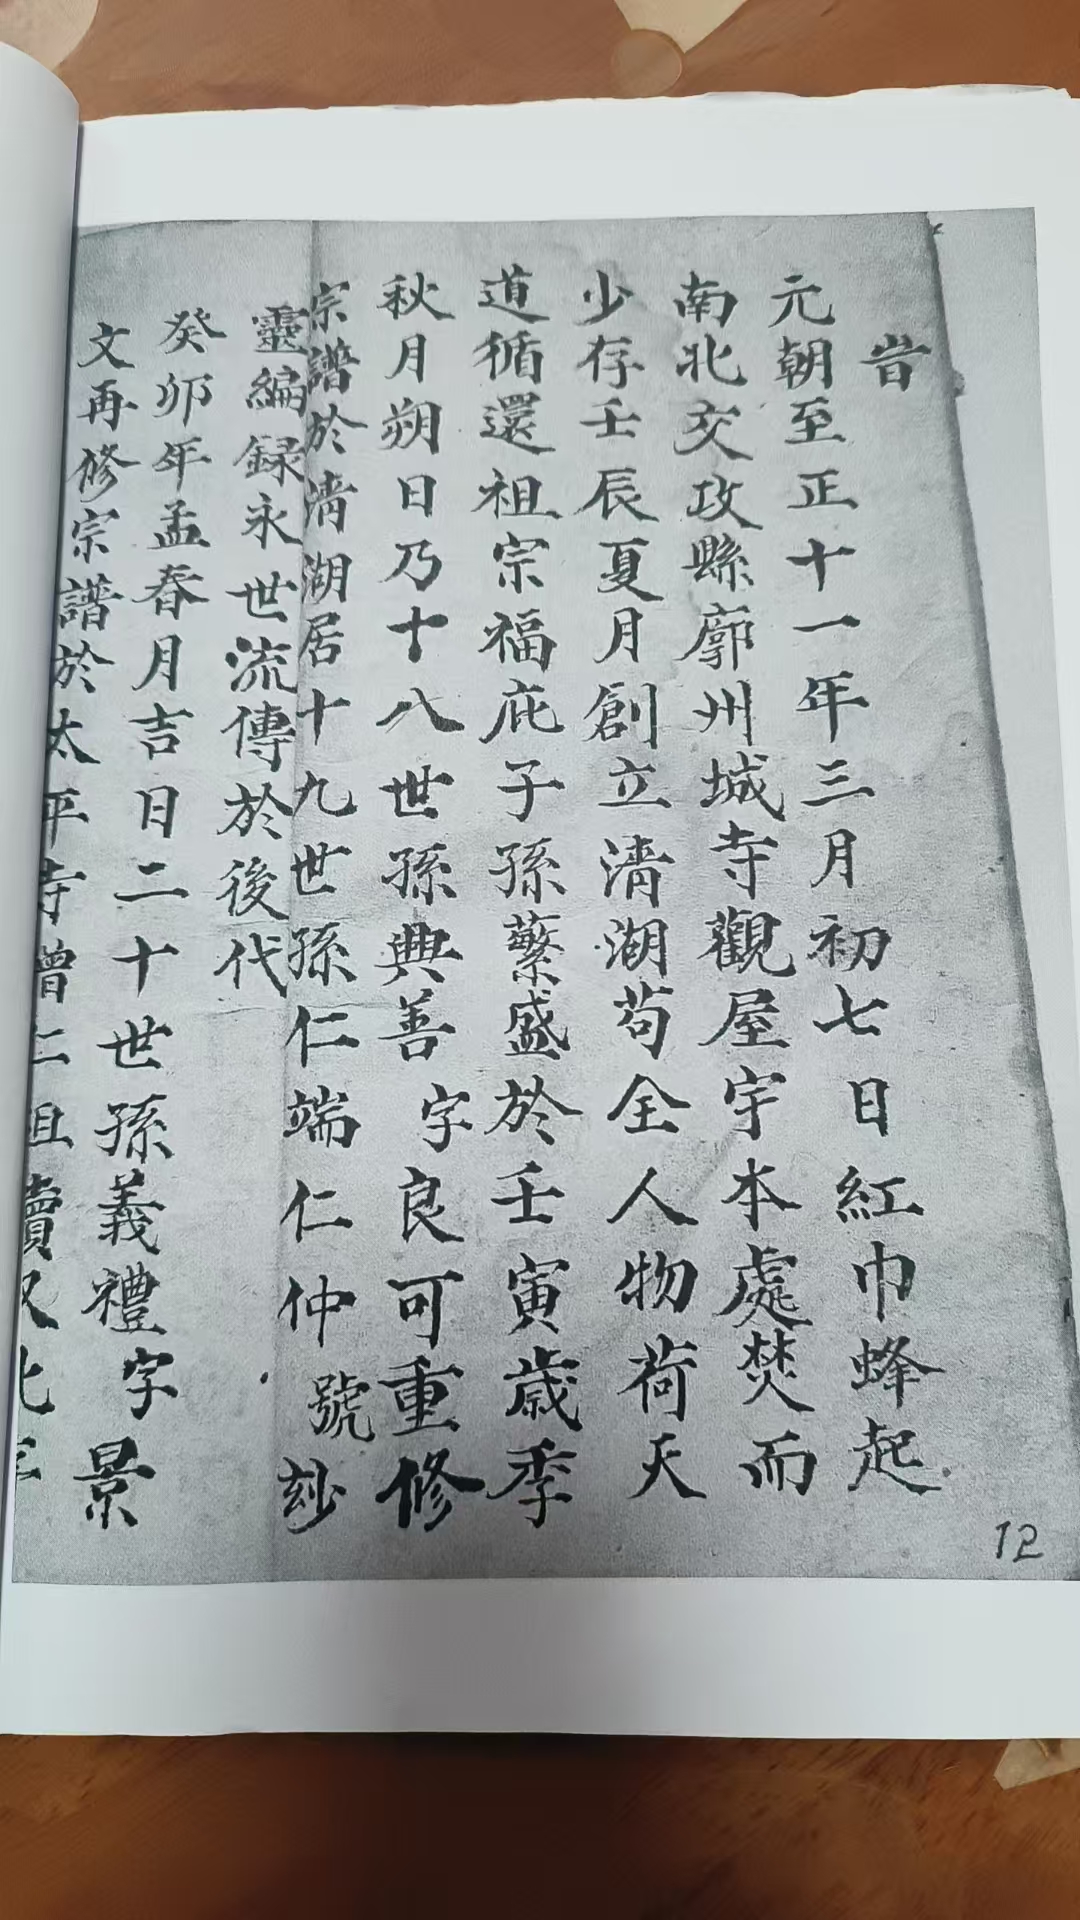 昔
元朝至正十一年三月初七日紅巾蜂起
南北交攻縣廓州城寺觀屋宇本處焚而
少存壬辰夏月創立清湖苟全人物荷天
道循還祖宗福庇子孫繁盛於壬寅歲季
秋月朔日乃十八世孫典善字良可重修
宗譜於清湖居十九世孫仁端仁仲號玅
靈編録永世流傳於後代
癸卯年孟春月吉日二十世孫義禮字景
文再修宗譜於太平寺僧仁祖讀
12